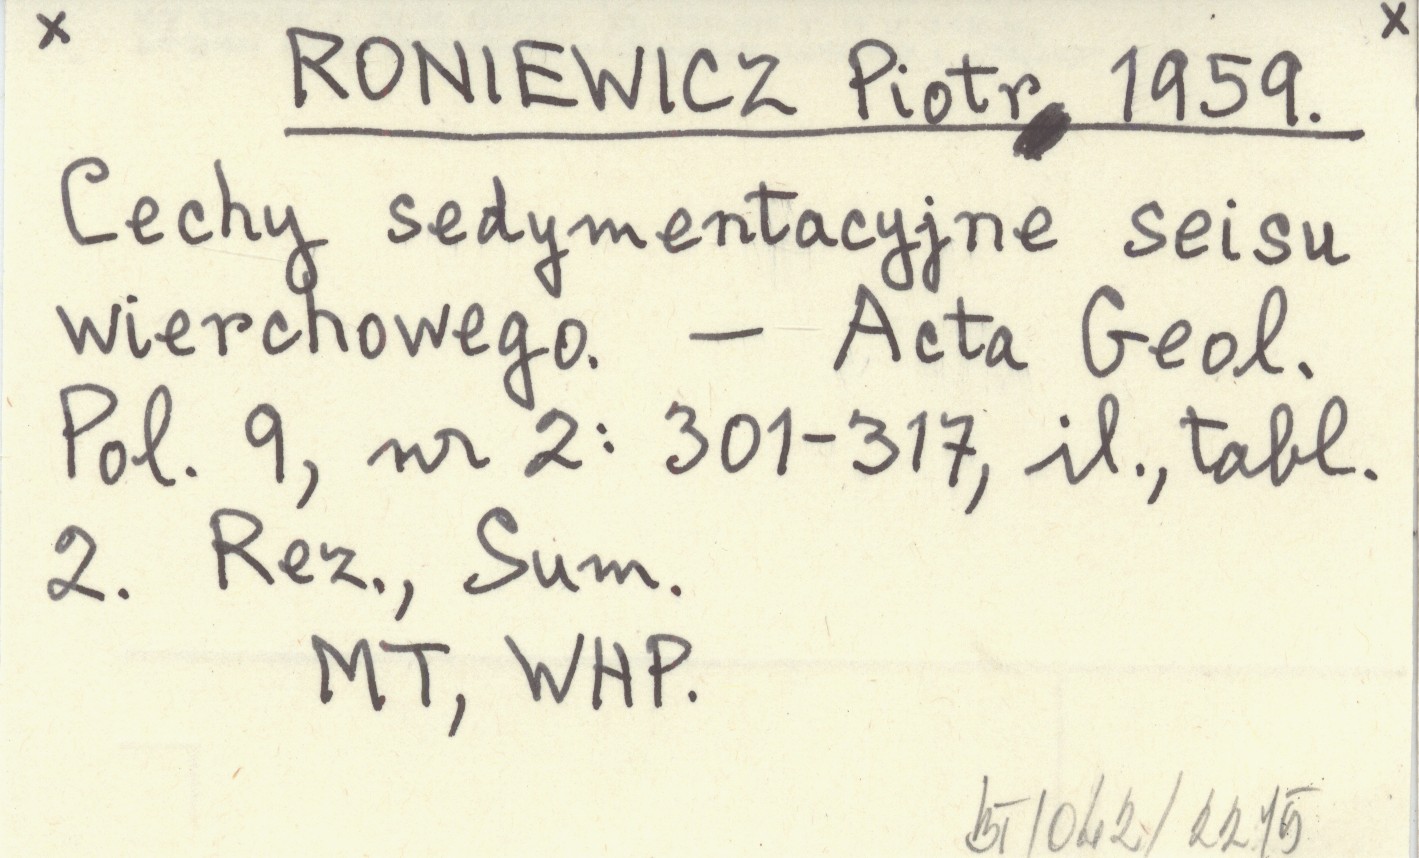 x x
RONIEWICZ Piotr 1959.
Cechy sedymentacyjne seisu
wierchowego. — Acta Geol.
Pol. 9, nr 2: 301-317, il., tabl.
2. Rez., Sum.
MT, WHP.